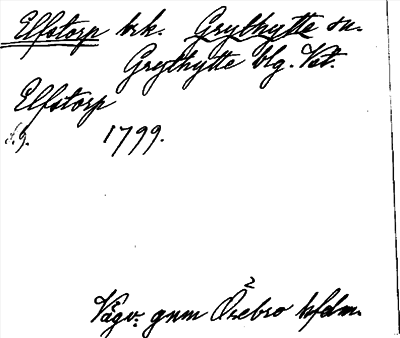 Elfstorp brk. Grythytte sn.
Grythytte blg. Vst.
Elfstorp
d.g. 1799.
Vägv. gnm Örebro hfdm.